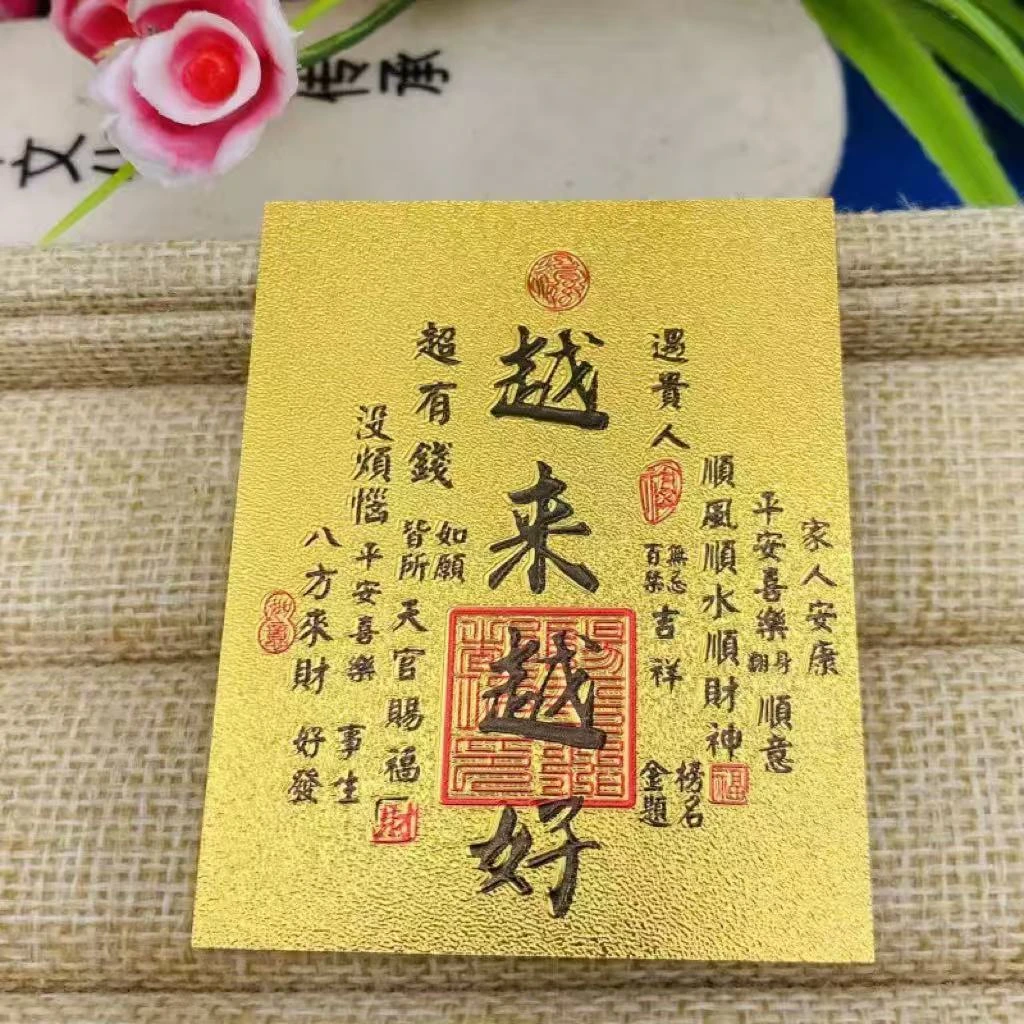 文
传承
越来越好
遇貴人
百無
禁忌
吉祥
金榜
題名
順風順水順財神
福
平安喜樂
順意
家人安康
超有錢
皆如
所願
天官賜福
財
没煩惱
平安喜樂
好事
發生
八方來財
如意